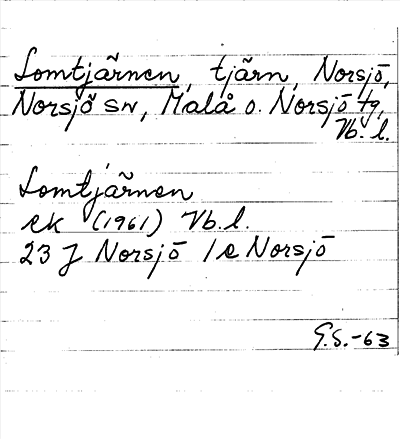 Lomtjärnen, tjärn, Norsjö,
Norsjö sn, Malå o. Norsjö tg,
Vb. l.
Lomtjärnen
ek (1961) Vb. l.
23 J Norsjö 1 e Norsjö
G.S.-63